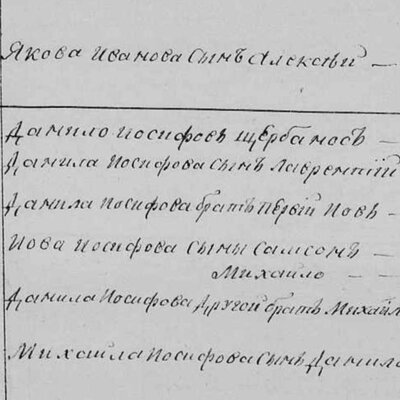 Якова Иванова Сынъ Алексѣй —
Данило Иосифовъ Щербаносъ —
Данила Иосифова Сынъ Лаврентій
Данила Иосифова братъ Первый Иовъ —
Иова Иосифова Сыны Самсонъ —
Михайло — —
Данила Иосифова Другой братъ Михайл
Михайла Иосифова Сынъ Данило